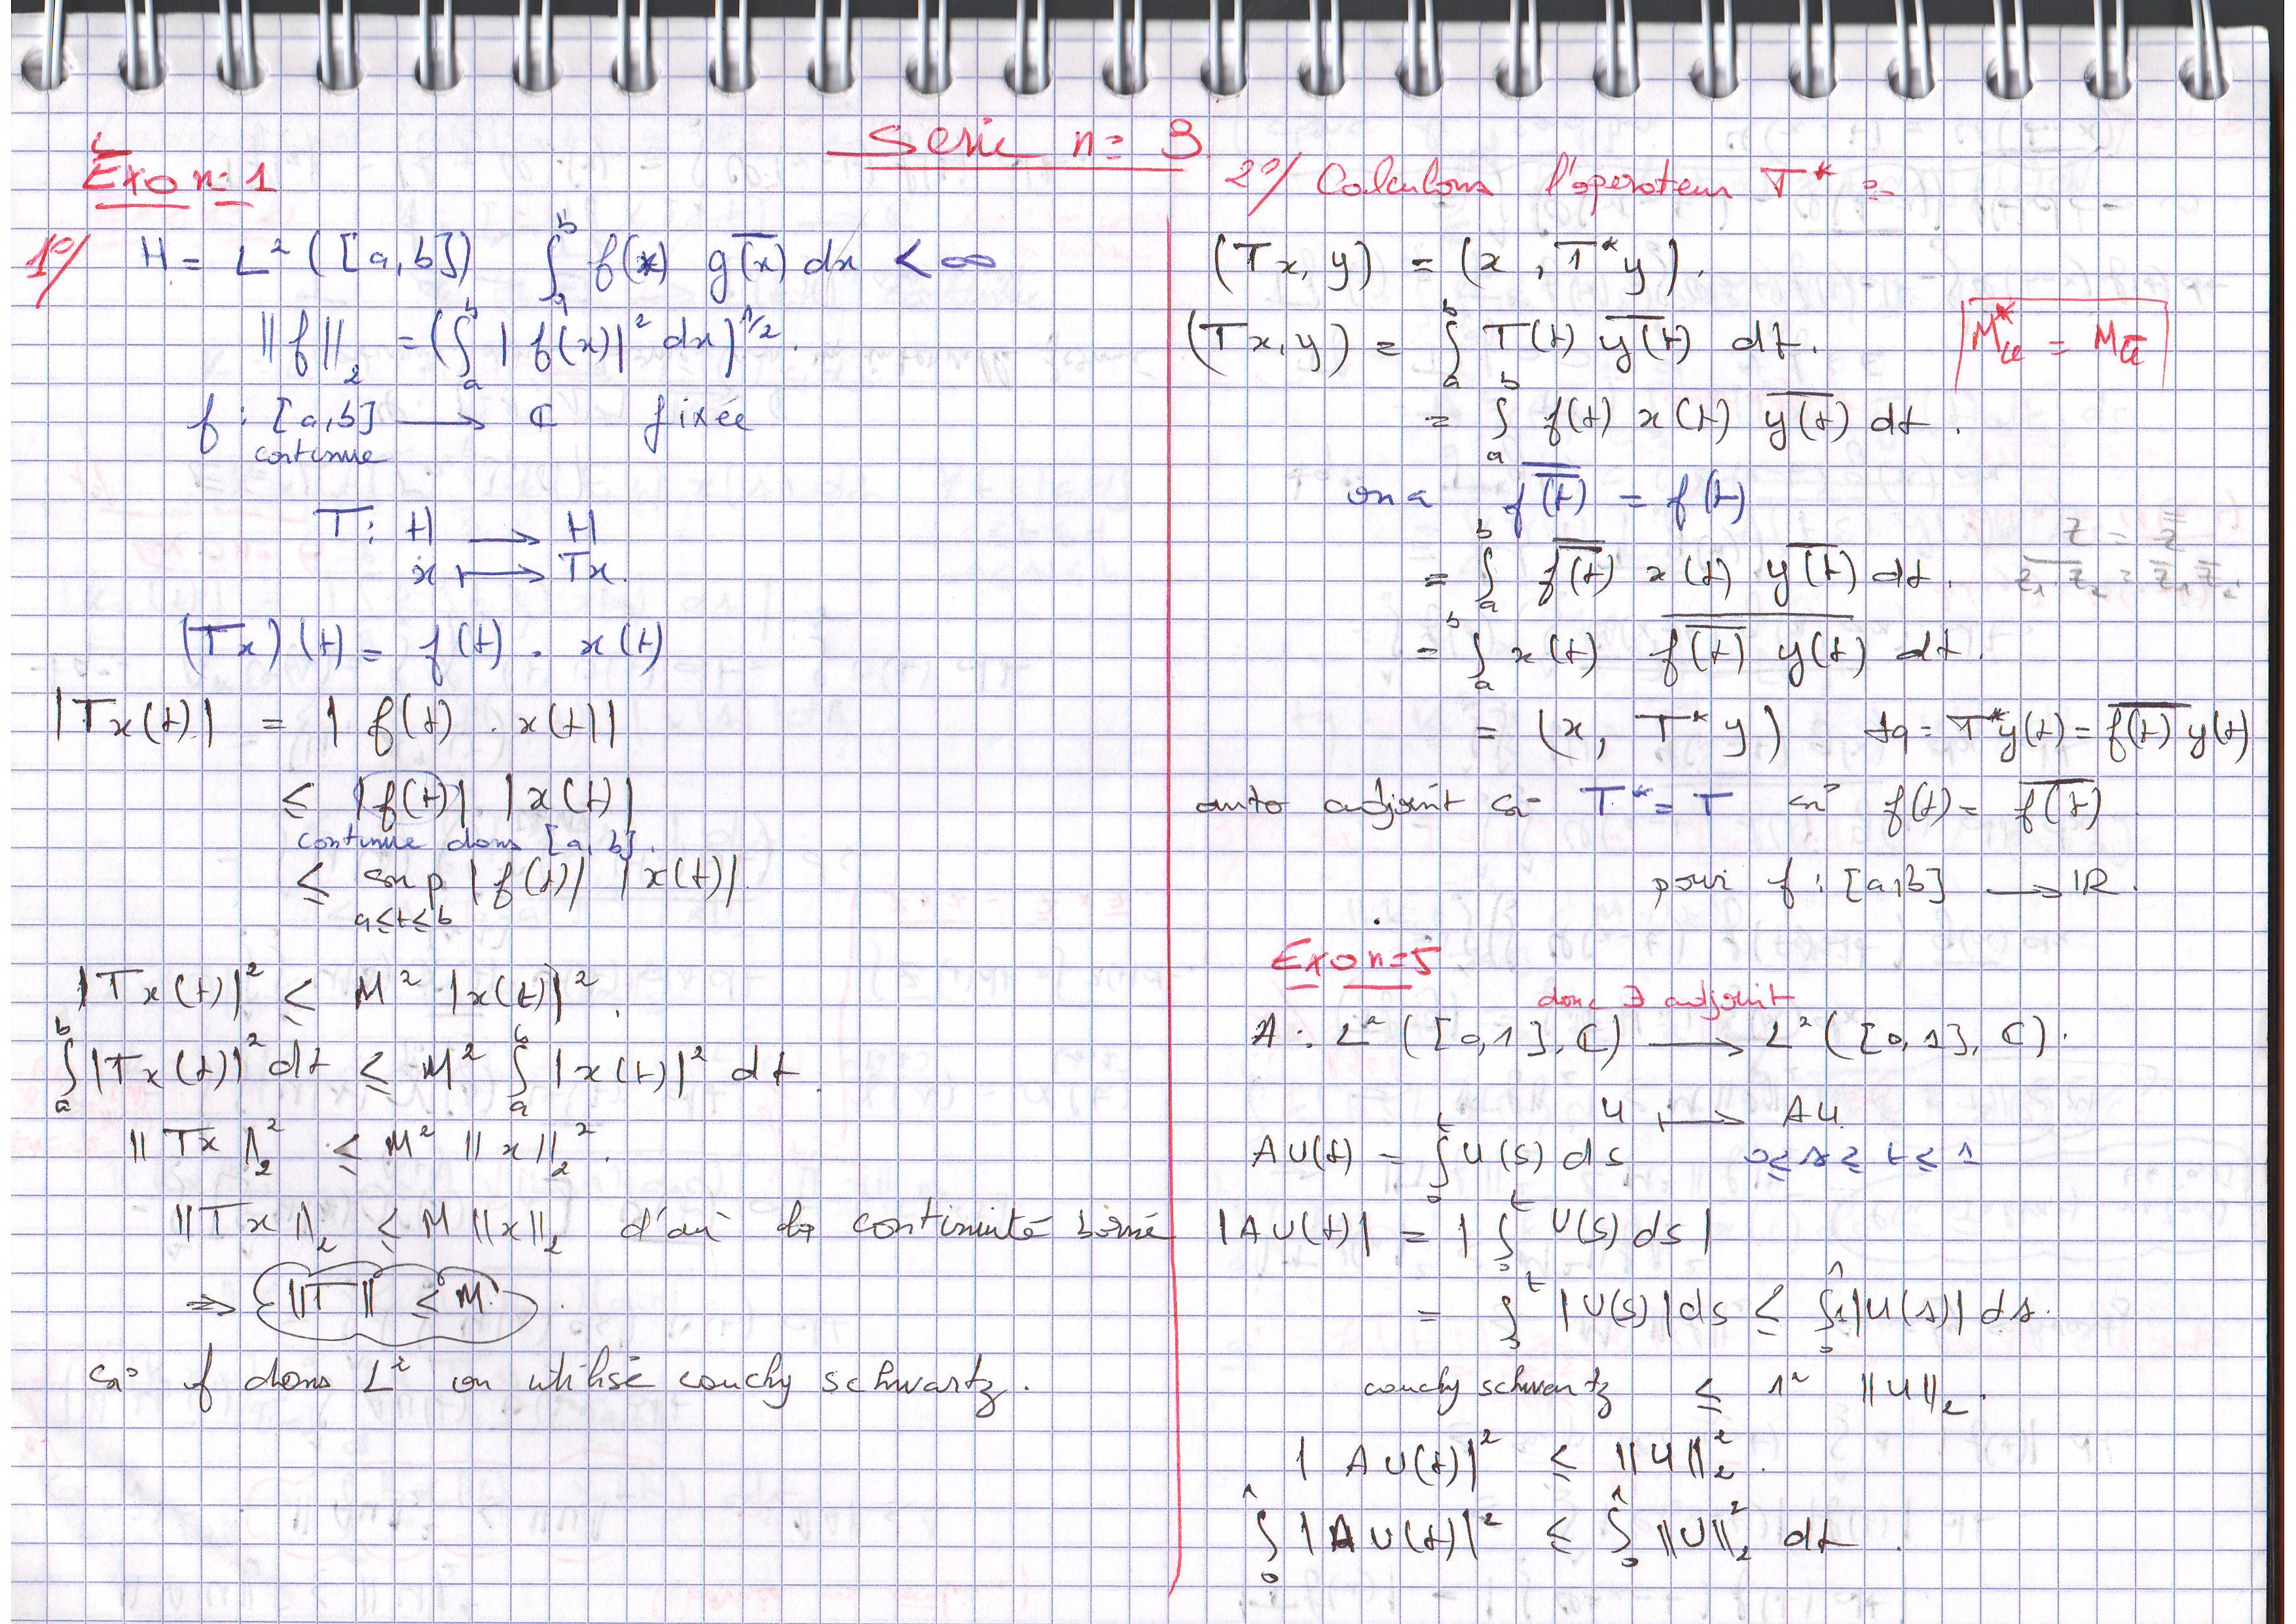 Serie n= 3
Exo n=1
1°/ H = L² ([a,b]) ∫_a^b f(x) \overline{g(x)} dx < ∞
||f||_2 = (∫_a^b |f(x)|² dx)^{1/2}.
f : [a,b] ⟶ ℂ fixée
continue
T: H ⟶ H
x ⟼ Tx.
(Tx)(t) = f(t) . x(t)
|Tx(t)| = | f(t) . x(t)|
≤ |f(t)| |x(t)|
continue dans [a,b].
≤ sup |f(t)| |x(t)|.
a≤t≤b
|Tx(t)|² ≤ M² |x(t)|².
∫_a^b |Tx(t)|² dt ≤ M² ∫_a^b |x(t)|² dt.
||Tx||_2² ≤ M² ||x||_2².
||Tx||_2 ≤ M ||x||_2 d'où la continuité borné
⇒ ||T|| ≤ M.
si f dans L² on utilise couchy schwartz.
2°/ Calculons l'operateur T* =
(Tx, y) = (x, T*y).
(Tx, y) = ∫_a^b T(t) \overline{y(t)} dt.
M*_φ = M_{\overline{φ}}
= ∫_a^b f(t) x(t) \overline{y(t)} dt.
on a \overline{\overline{f(t)}} = f(t)
= ∫_a^b \overline{\overline{f(t)}} x(t) \overline{y(t)} dt.
z = \overline{\overline{z}}
\overline{z_1 z_2} = \overline{z_1} \overline{z_2}
= ∫_a^b x(t) \overline{\overline{f(t)} y(t)} dt.
= (x, T*y) tq = T*y(t) = \overline{f(t)} y(t)
auto adjoint si T* = T si f(t) = \overline{f(t)}
pour f : [a,b] ⟶ ℝ.
Exo n=5
donc ∃ adjoint
A : L² ([0,1], ℂ) ⟶ L² ([0,1], ℂ).
u ⟼ Au.
AU(t) = ∫_0^t U(s) ds 0 ≤ s ≥ t ≤ 1
|AU(t)| = |∫_0^t U(s) ds|
= ∫_0^t |U(s)| ds ≤ ∫_0^1 1|U(s)| ds.
couchy schwartz ≤ 1² ||u||_2.
|AU(t)|² ≤ ||u||_2².
∫_0^1 |AU(t)|² ≤ ∫_0^1 ||U||_2² dt.